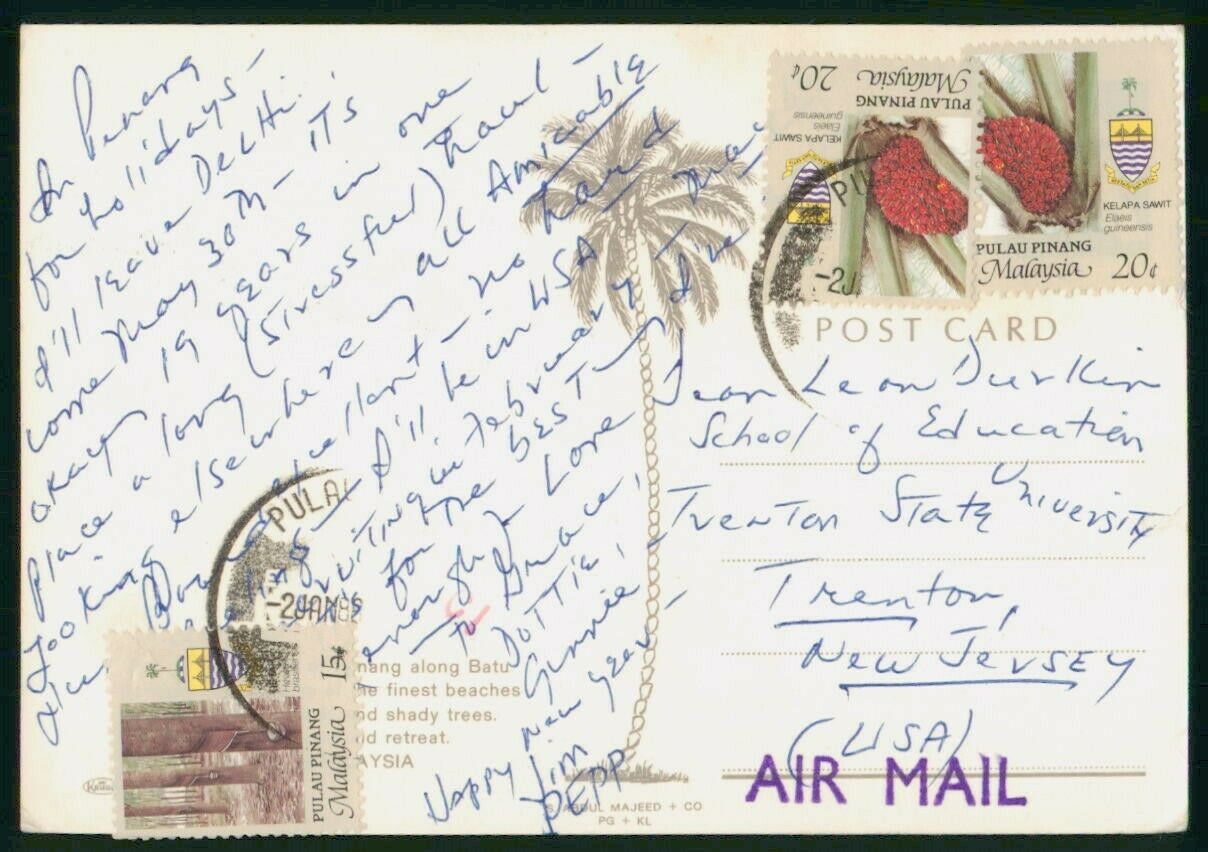 In Penang
for holidays -
I'll leave Delhi
come May 30th -
okay 19 years in one
place a long (stressful) haul -
looking elsewhere in all Amicable
no hard
I'll be in USA
recruiting in February &
for the best
enough
Love
to Grace,
Dottie,
Gunnie -
Happy New Year -
Jim
PEPP
nang along Batu
he finest beaches
nd shady trees.
id retreat.
AYSIA
S. ABDUL MAJEED + CO
PG + KL
20¢
PULAU PINANG
Malaysia
KELAPA SAWIT
Elaeis
guineensis
KELAPA SAWIT
Elaeis
guineensis
PULAU PINANG
Malaysia 20¢
PU
-2J
POST CARD
Dean Leon Durkin
School of Education
Trenton State University
Trenton,
New Jersey
(USA)
AIR MAIL
PULA
-2JAN
15¢
PULAU PINANG
Malaysia